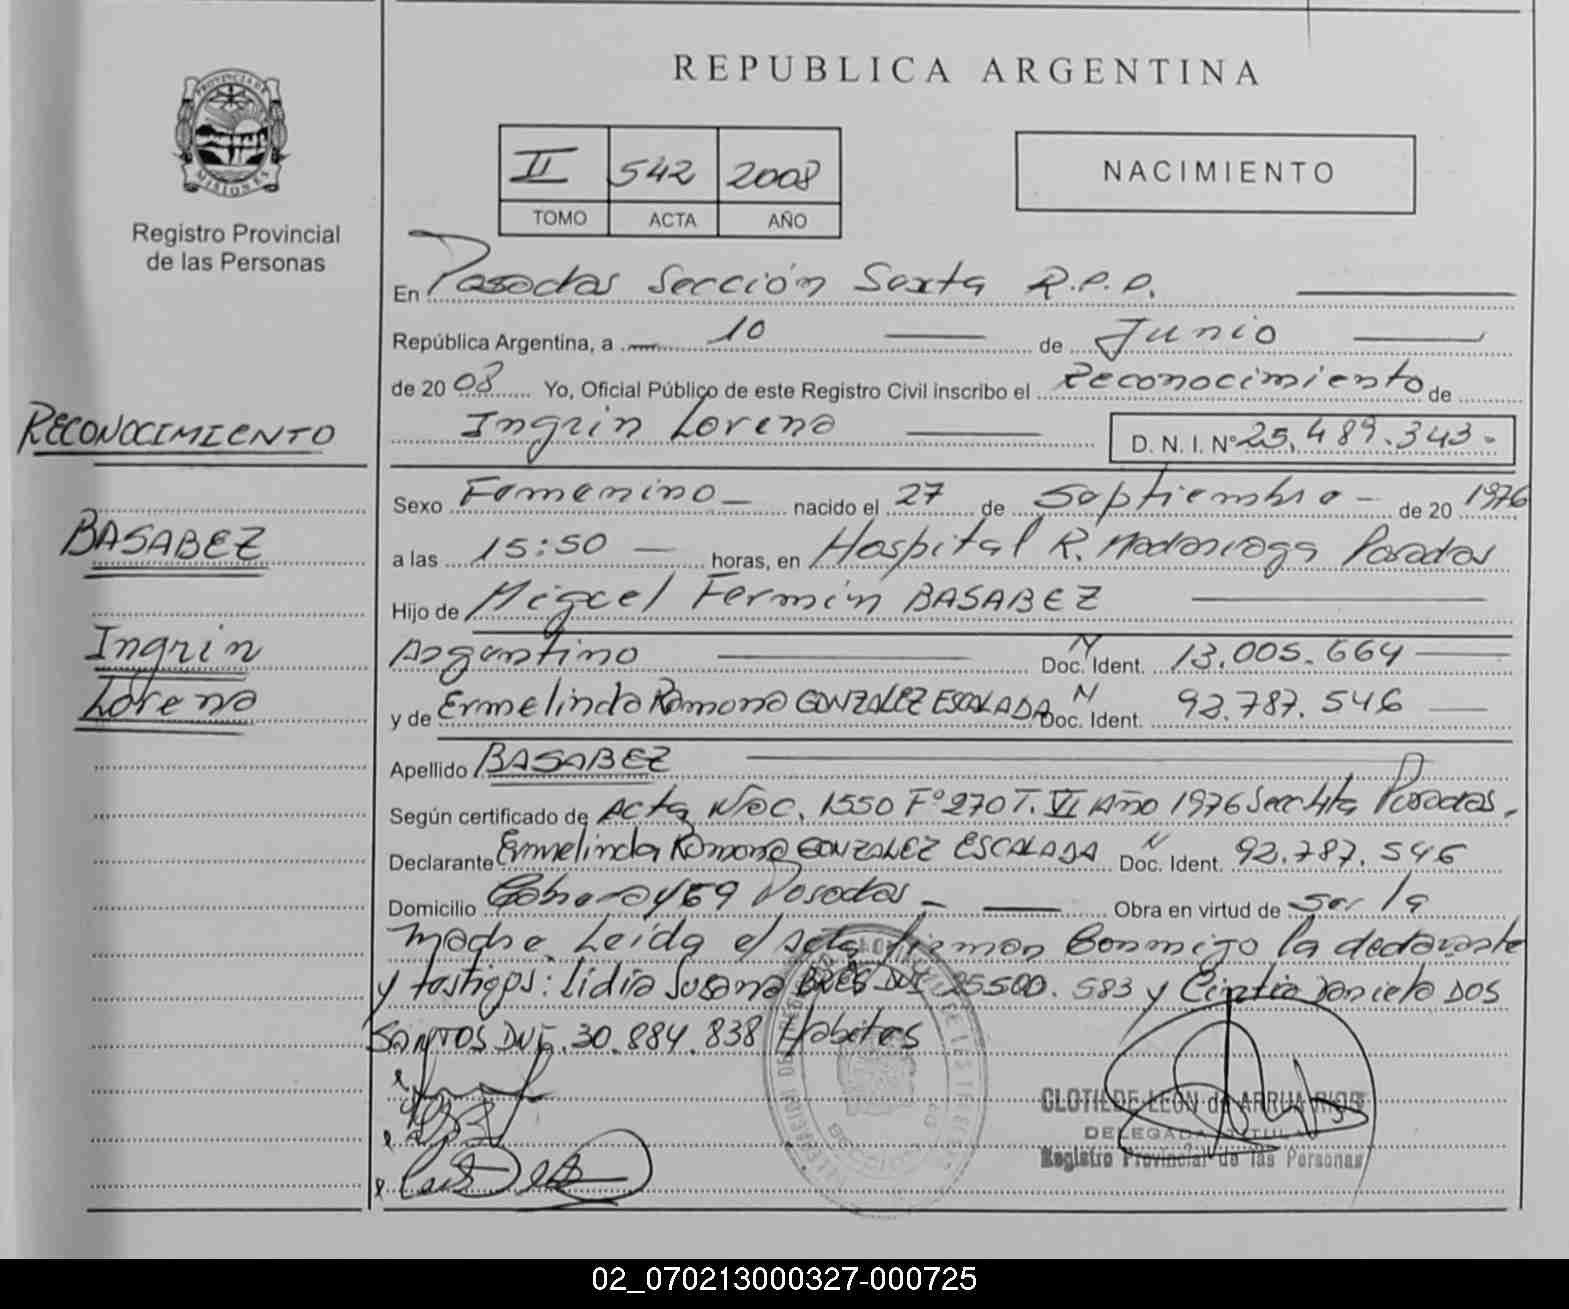 REPUBLICA ARGENTINA
PROVINCIA DE
MISIONES
Registro Provincial
de las Personas
II 542 2008
TOMO ACTA AÑO
NACIMIENTO
En Posadas Sección Sexta R.P.P.
República Argentina, a 10 de Junio
de 20 08 Yo, Oficial Público de este Registro Civil inscribo el Reconocimiento de
Ingrin Lorena D. N. I. Nº 25.489.343.-
RECONOCIMIENTO
BASABEZ
Ingrin
Lorena
Sexo Femenino nacido el 27 de Septiembre de 20 1976
a las 15:50 horas, en Hospital R. Madariaga Posadas
Hijo de Miguel Fermín BASABEZ
Argentino Doc. Ident. N 13.005.664
y de Ermelinda Ramona GONZALEZ ESCALADA Doc. Ident. N 92.787.546
Apellido BASABEZ
Según certificado de Acta Nac. 1550 Fº 270 T. VI Año 1976 Secc 4ta Posadas.
Declarante Ermelinda Ramona GONZALEZ ESCALADA Doc. Ident. N 92.787.546
Domicilio 469 Posadas Obra en virtud de ser la
madre. Leída el acta firman conmigo la declarante
y testigos: Lidia Susana DNI 25500.583 y Cintia Daniela DOS
SANTOS DNI. 30.884.838 Hábiles
CLOTILDE LEON de ARRUA RIOS
DELEGADA TITULAR
Registro Provincial de las Personas
02_070213000327-000725